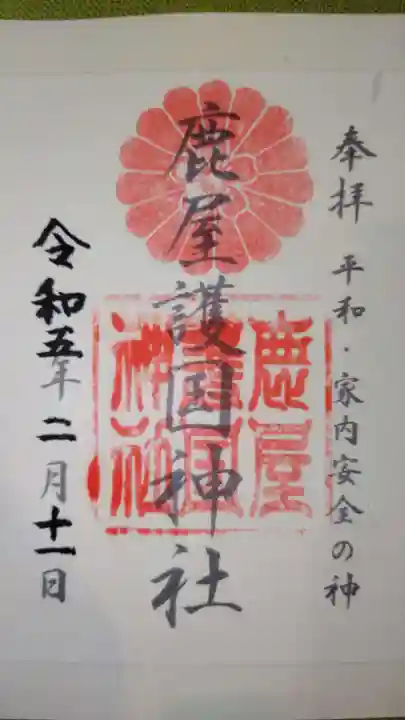 奉拝 平和・家内安全の神
鹿屋護国神社
鹿屋
護国
神社
令和五年二月十一日